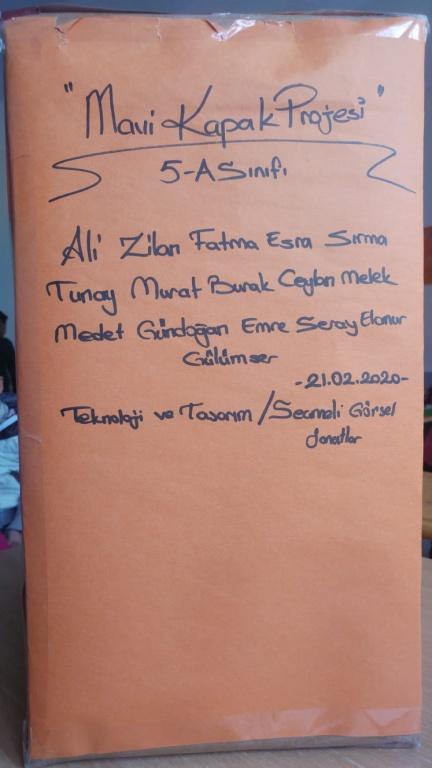 "Mavi Kapak Projesi"
5-A Sınıfı
Ali Zilan Fatma Esra Sırma
Tunay Murat Burak Ceylan Melek
Medet Gündoğan Emre Seray Elanur
Gülümser
-21.02.2020-
Teknoloji ve Tasarım/Seçmeli Görsel
Sanatlar